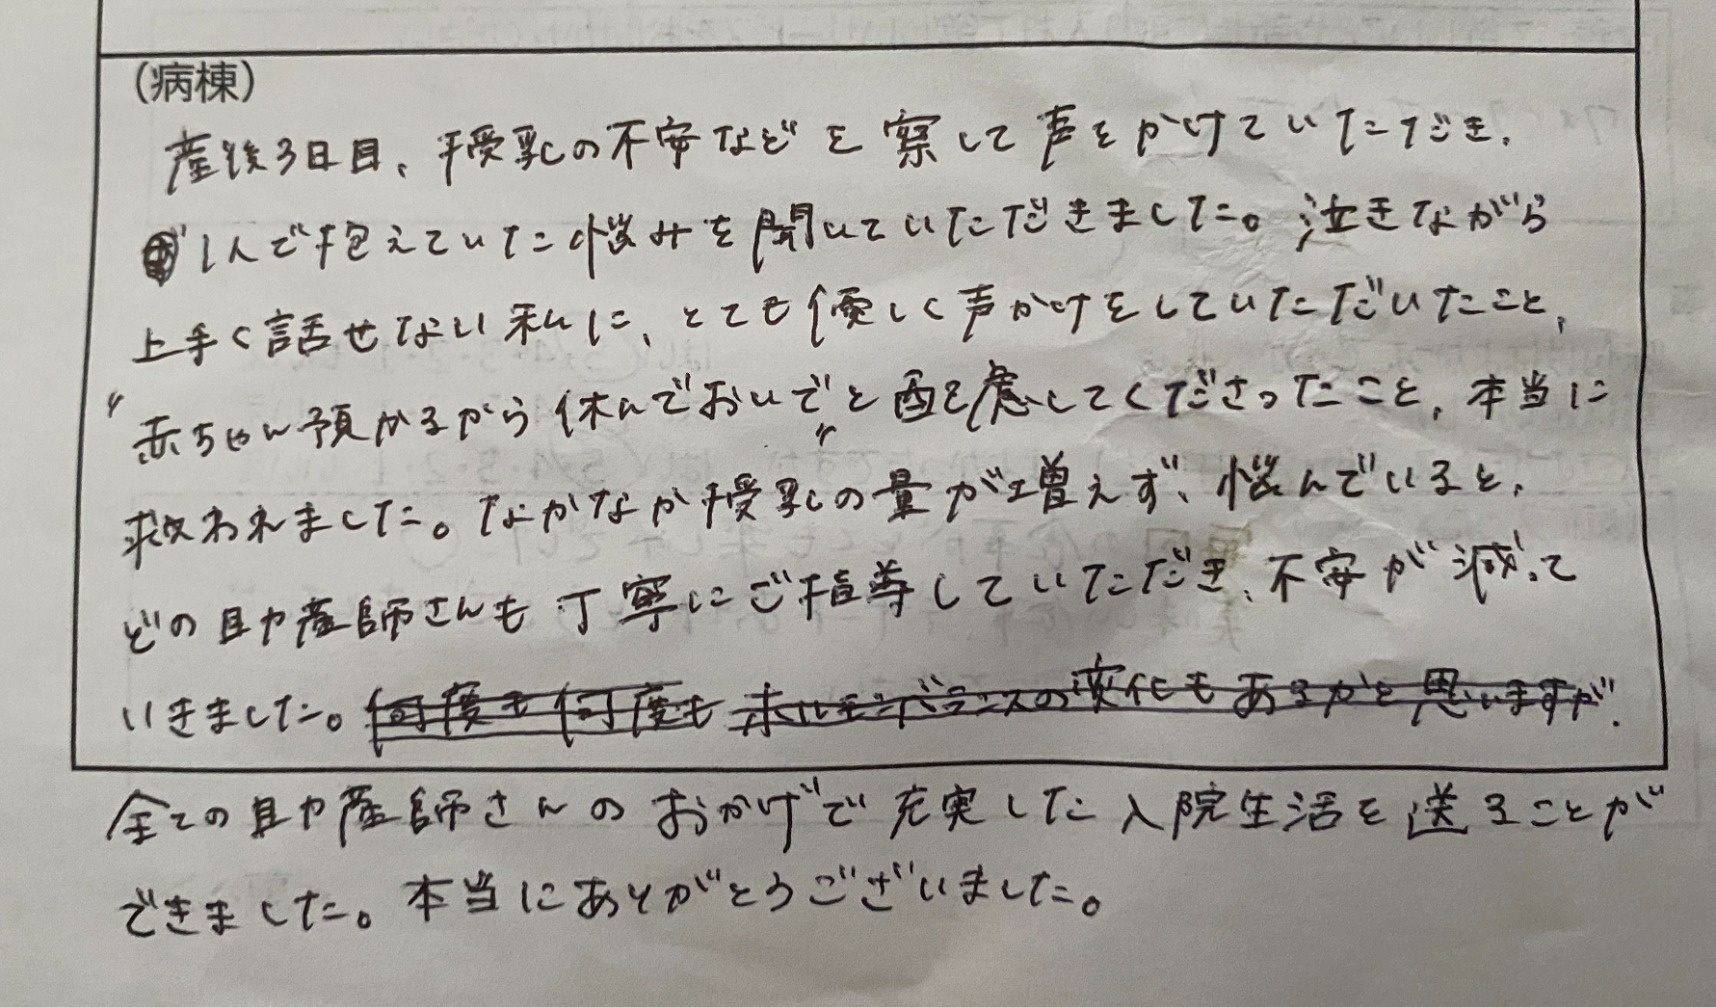 (病棟)
産後3日目、授乳の不安などを察して声をかけていただき、
1人で抱えていた悩みを聞いていただきました。泣きながら
上手く話せない私に、とても優しく声かけをしていただいたこと、
"赤ちゃん預かるから休んでおいで"と配慮してくださったこと、本当に
救われました。なかなか授乳の量が増えず、悩んでいると、
どの助産師さんも丁寧にご指導していただき、不安が減って
いきました。何度も何度も ホルモンバランスの変化もあるかと思いますが、
全ての助産師さんのおかげで充実した入院生活を送ることが
できました。本当にありがとうございました。